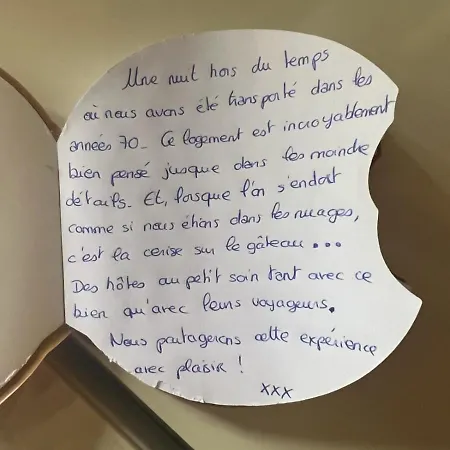 Une nuit hors du temps
où nous avons été transporté dans les
années 70_ Ce logement est incroyablement
bien pensé jusque dans les moindre
détails. Et, lorsque l'on s'endort
comme si nous étions dans les nuages,
c'est la cerise sur le gâteau...
Des hôtes au petit soin tant avec ce
bien qu'avec leurs voyageurs.
Nous partagerons cette expérience
avec plaisir !
xxx